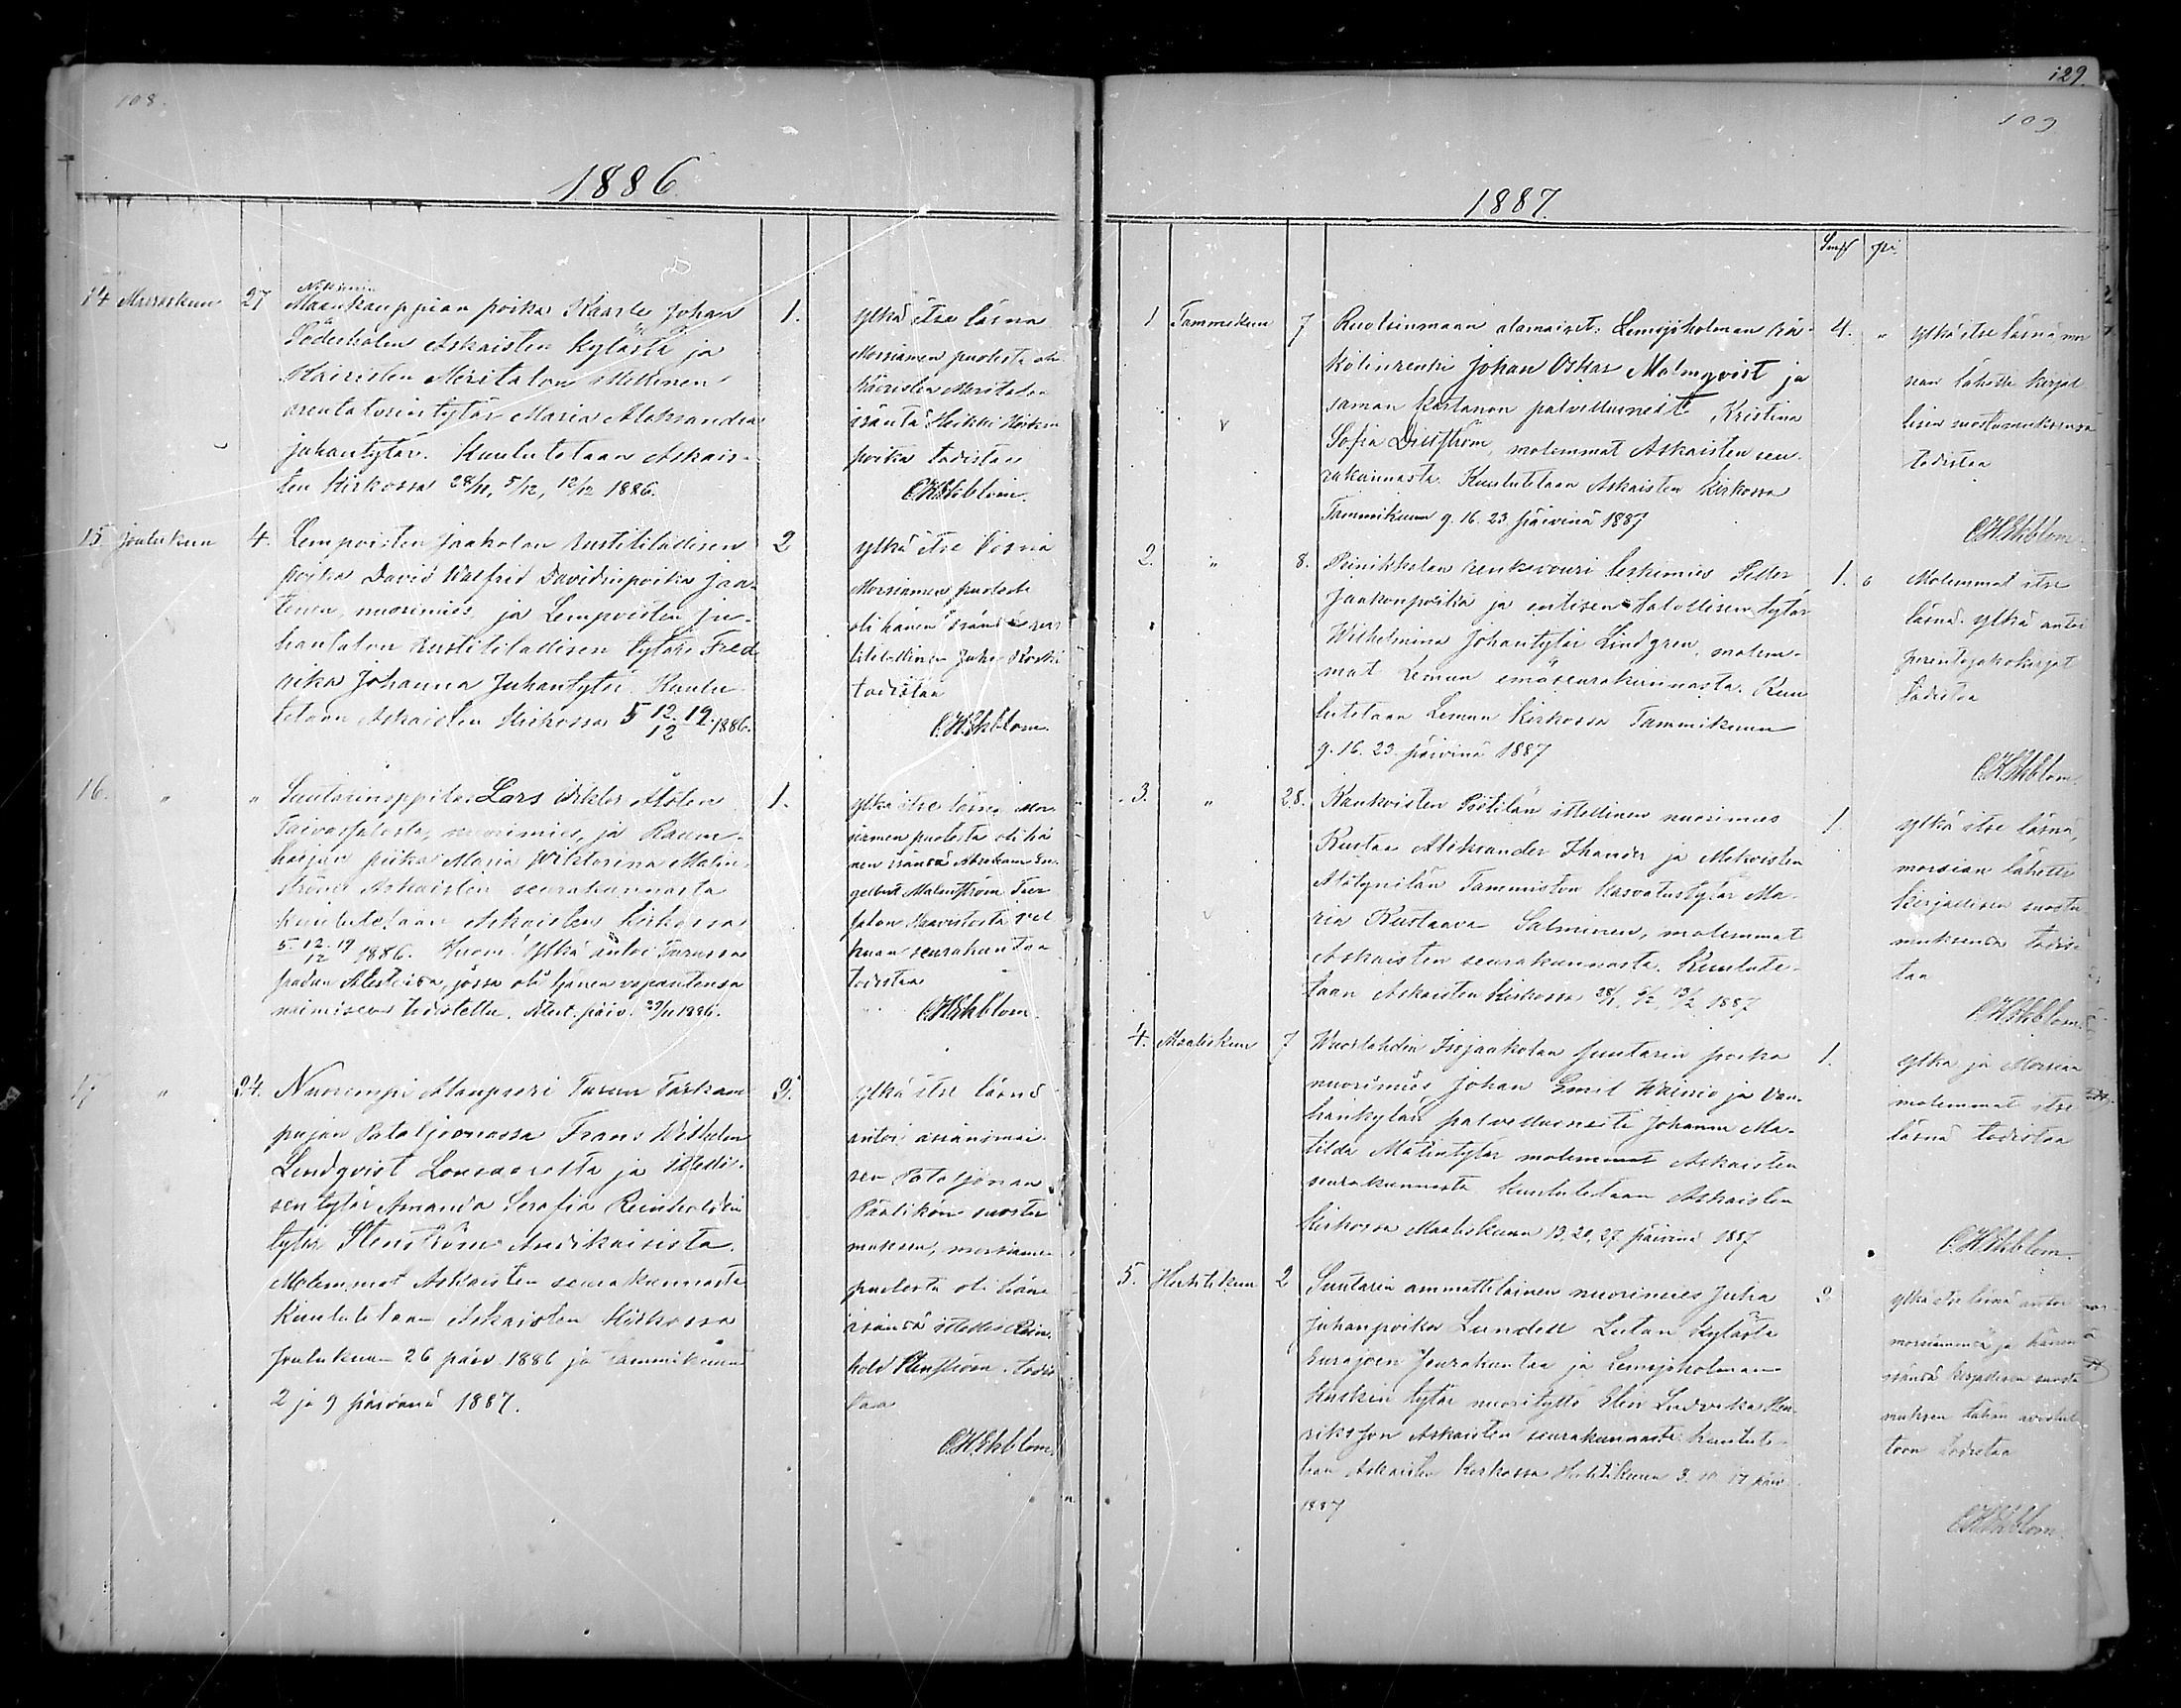 108.
1886.
14 Marraskuu 27
Maankauppian poika Kaarle Johan
Söderholm Askaisten kylästä ja
Meritalon ittellisen
tytär Maria Aleksandra
Juhantytär. Kuulutetaan Askais-
ten Kirkossa 28/11, 5/12, 12/12 1886.
1.
ylkä itse läsnä
Morsiamen puolesta oli
Meritalon
isäntä Heikki Heikin
poika todistaa
C.H. Ekblom.
15 Joulukuu 4.
Lempoisten Jaakolan rustitilallisen
poika David Walfrid Davidinpoika Jaa-
nuorimies, ja Lempoisten Ju-
hantalon rustitilallisen tytär Fred
rika Johanna Juhantytär. Kuulu-
tetaan Askaisten Kirkossa 5 12. 19./12 1886.
2
ylkä itse läsnä
Morsiamen puolesta
oli hänen isänsä rus
titilallinen Juho
todistaa
C.H. Ekblom.
16. " "
Suutarinoppilas Lars Viktor
nuorimies, ja
piika Maria Wiktorina Malm-
ström Askaisten seurakunnasta
kuulutetaan Askaisten Kirkossa
5. 12. 19/12 1886. Huom! Ylkä antoi Turussa
jossa oli hänen vapautensa
naimiseen todistettu. päiv. 29/11 1886.
1.
ylkä itse läsnä Mor-
siamen puolesta oli hä
nen isänsä Abraham En-
gelbert Malmström
seurakuntaa
todistaa
C.H. Ekblom.
17 " 24.
Nuorempi Alaupseri Turun Tarkam
pujan Pataljoonassa Frans Wilhelm
Lindqvist Lonsaaresta ja ittelli-
sen tytär Amanda Serafia Reinholdin
tytär Stenström Autikaisista.
Molemmat Askaisten seurakunnasta
Kuulutetaan Askaisten Kirkossa
Joulukuun 26 päiv. 1886 ja Tammikuun
2 ja 9 päivänä 1887.
2.
ylkä itse läsnä
antoi asianomai-
sen Pataljonan
Päälikön suostu
muksen, morsiamen
puolesta oli hänen
isänsä ittellis Rein-
hold Stenström. todis
taa
C.H. Ekblom.
129.
109
1887.
1 Tammikuu 7
Ruotsinmaan alamaiset: Lemsjöholman
Johan Oskar Malmqvist ja
saman Kartanon palvellusneiti Kristina
Sofia molemmat Askaisten seu-
rakunnasta. Kuulutetaan Askaisten Kirkossa
Tammikuun 9. 16. 23. päivinä 1887
4. "
ylkä itse läsnä mor
sian lähetti kirjal
lisen suostumuksensa
todistaa
C.H. Ekblom.
2. " 8.
renkivouri leskimies Petter
Jaakonpoika ja entisen talollisen tytär
Wilhelmina Johantytär Lindgren, molem-
mat Lemun emäseurakunnasta. Kuu
lutetaan Lemun Kirkossa Tammikuun
9. 16. 23. päivinä 1887
1.
Molemmat itse
läsnä. ylkä antoi
perintöjakokirjat
todistaa
C.H. Ekblom.
3. " 28.
Kankoisten ittellinen nuorimies
Kustaa Aleksander Thander ja
Tammiston kasvatustytär Ma-
ria Kustaava Salminen, molemmat
Askaisten seurakunnasta. Kuulute-
taan Askaisten Kirkossa 28/1 6/2 13/2 1887
1.
ylkä itse läsnä,
morsian lähetti
kirjallisen suostu
muksensa todis
taa
C.H. Ekblom.
4. Maaliskuu 7
Isojaakolan suutarin poika
nuorimies Johan Emil Wainio ja Van-
hankylän palvellusneiti Johanna Ma-
tilda Matintytär molemmat Askaisten
seurakunnasta kuulutetaan Askaisten
Kirkossa Maaliskuun 13, 20, 27 päivinä 1887
1.
ylkä ja Morsian
molemmat itse
läsnä todistaa
C.H. Ekblom.
5. Huhtikuu 2
Suutarin ammattilainen nuorimies Juha
Juhanpoika Lundell Lutan kylästä
Eurajoen Seurakuntaa ja Lemsjöholman
Kuskin tytär nuorityttö Elin Ludvika Hen
riksson Askaisten seurakunnasta. Kuulute-
taan Askaisten Kirkossa Huhtikuun 3. 10. 17 päiv
1887
2.
ylkä itse läsnä antoi
morsiamensa ja hänen
isänsä kirjallisen suostu
muksen tähän avioliit
toon todistaa
C.H. Ekblom.